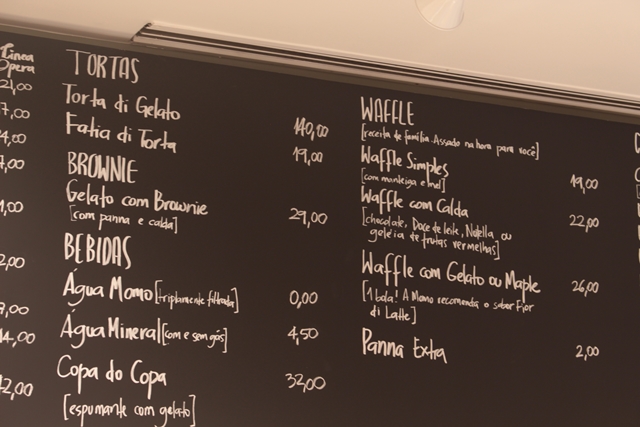 Linea
Opera
21,00
7,00
4,00
7,00
1,00
2,00
9,00
14,00
12,00
TORTAS
Torta di Gelato 140,00
Fatia di Torta 19,00
BROWNIE
Gelato com Brownie 29,00
[com panna e calda]
BEBIDAS
Água Momo [triplamente filtrada] 0,00
Água Mineral [com e sem gás] 4,50
Copa do Copa 32,00
[espumante com gelato]
WAFFLE
[receita de família. Assado na hora para você]
Waffle Simples 19,00
[com manteiga e mel]
Waffle com Calda 22,00
[chocolate, Doce de leite, Nutella ou
geléia de frutas vermelhas]
Waffle com Gelato ou Maple 26,00
[1 bola! A Momo recomenda o sabor Fior
di Latte]
Panna Extra 2,00